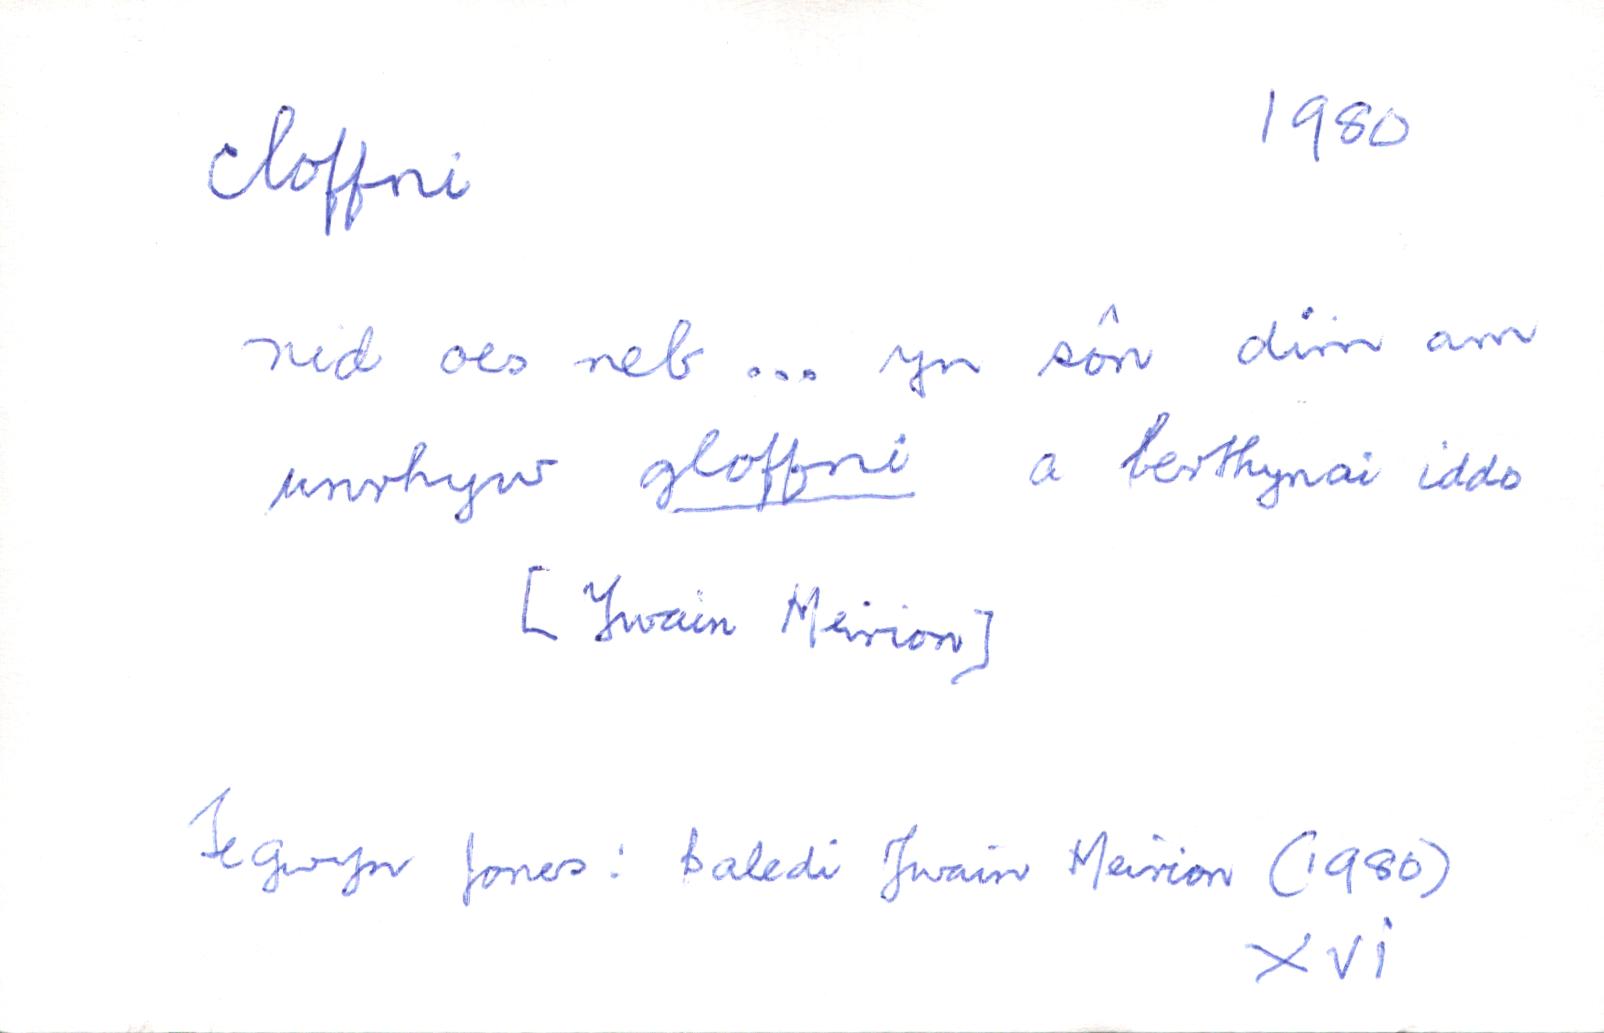 cloffni 1980
nid oes neb ... yn sôn dim am
unrhyw gloffni a berthynai iddo
[Ywain Meirion]
Tegwyn Jones: Baledi Ywain Meirion (1980)
xvi